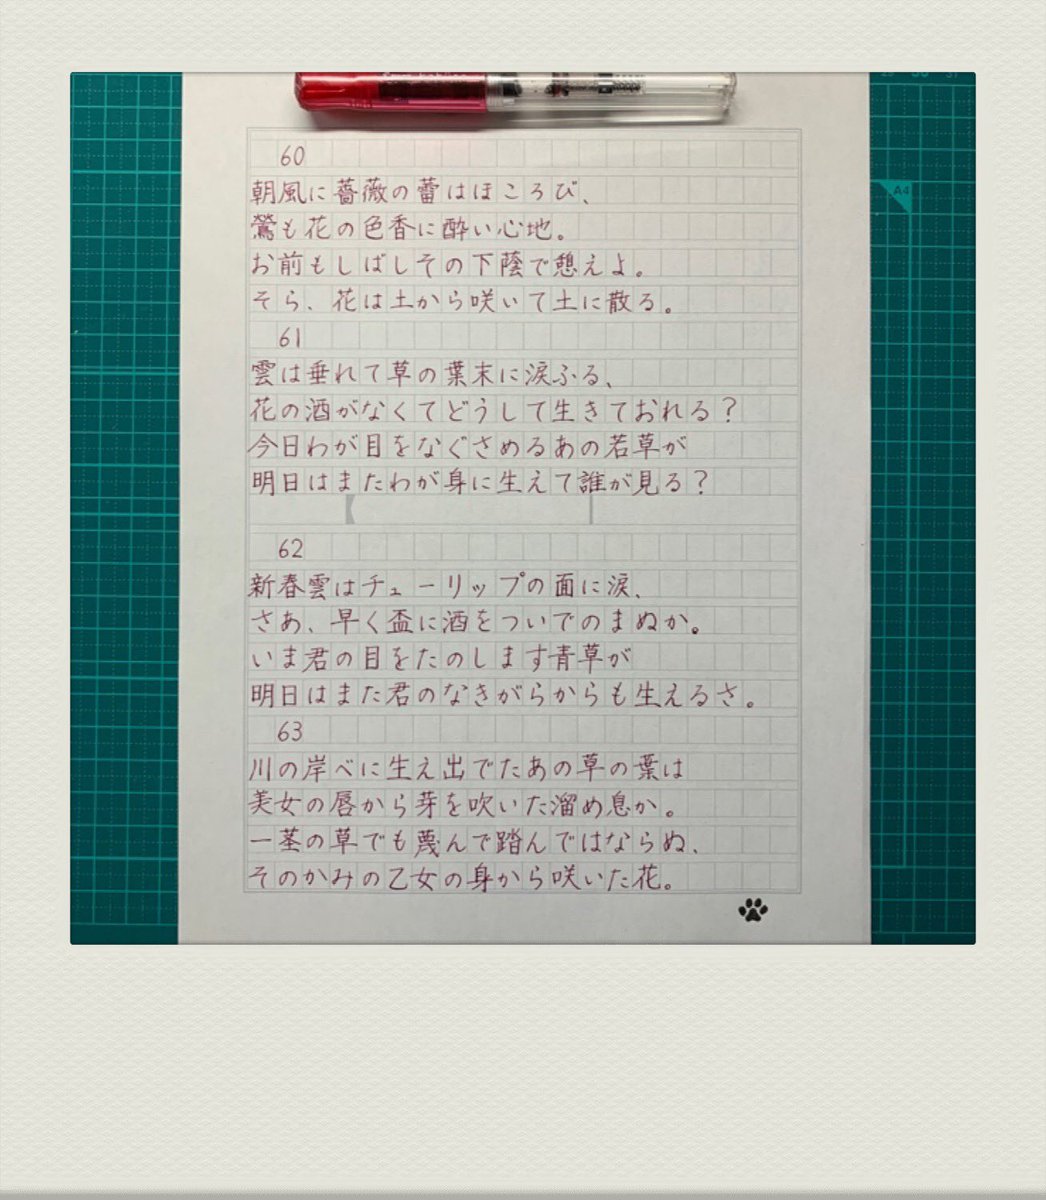 60
朝風に薔薇の蕾はほころび、
鶯も花の色香に酔い心地。
お前もしばしその下蔭で憩えよ。
そら、花は土から咲いて土に散る。
61
雲は垂れて草の葉末に涙ふる、
花の酒がなくてどうして生きておれる？
今日わが目をなぐさめるあの若草が
明日はまたわが身に生えて誰が見る？
62
新春雲はチューリップの面に涙、
さあ、早く盃に酒をついでのまぬか。
いま君の目をたのします青草が
明日はまた君のなきがらからも生えるさ。
63
川の岸べに生え出でたあの草の葉は
美女の唇から芽を吹いた溜め息か。
一茎の草でも蔑んで踏んではならぬ、
そのかみの乙女の身から咲いた花。
A4